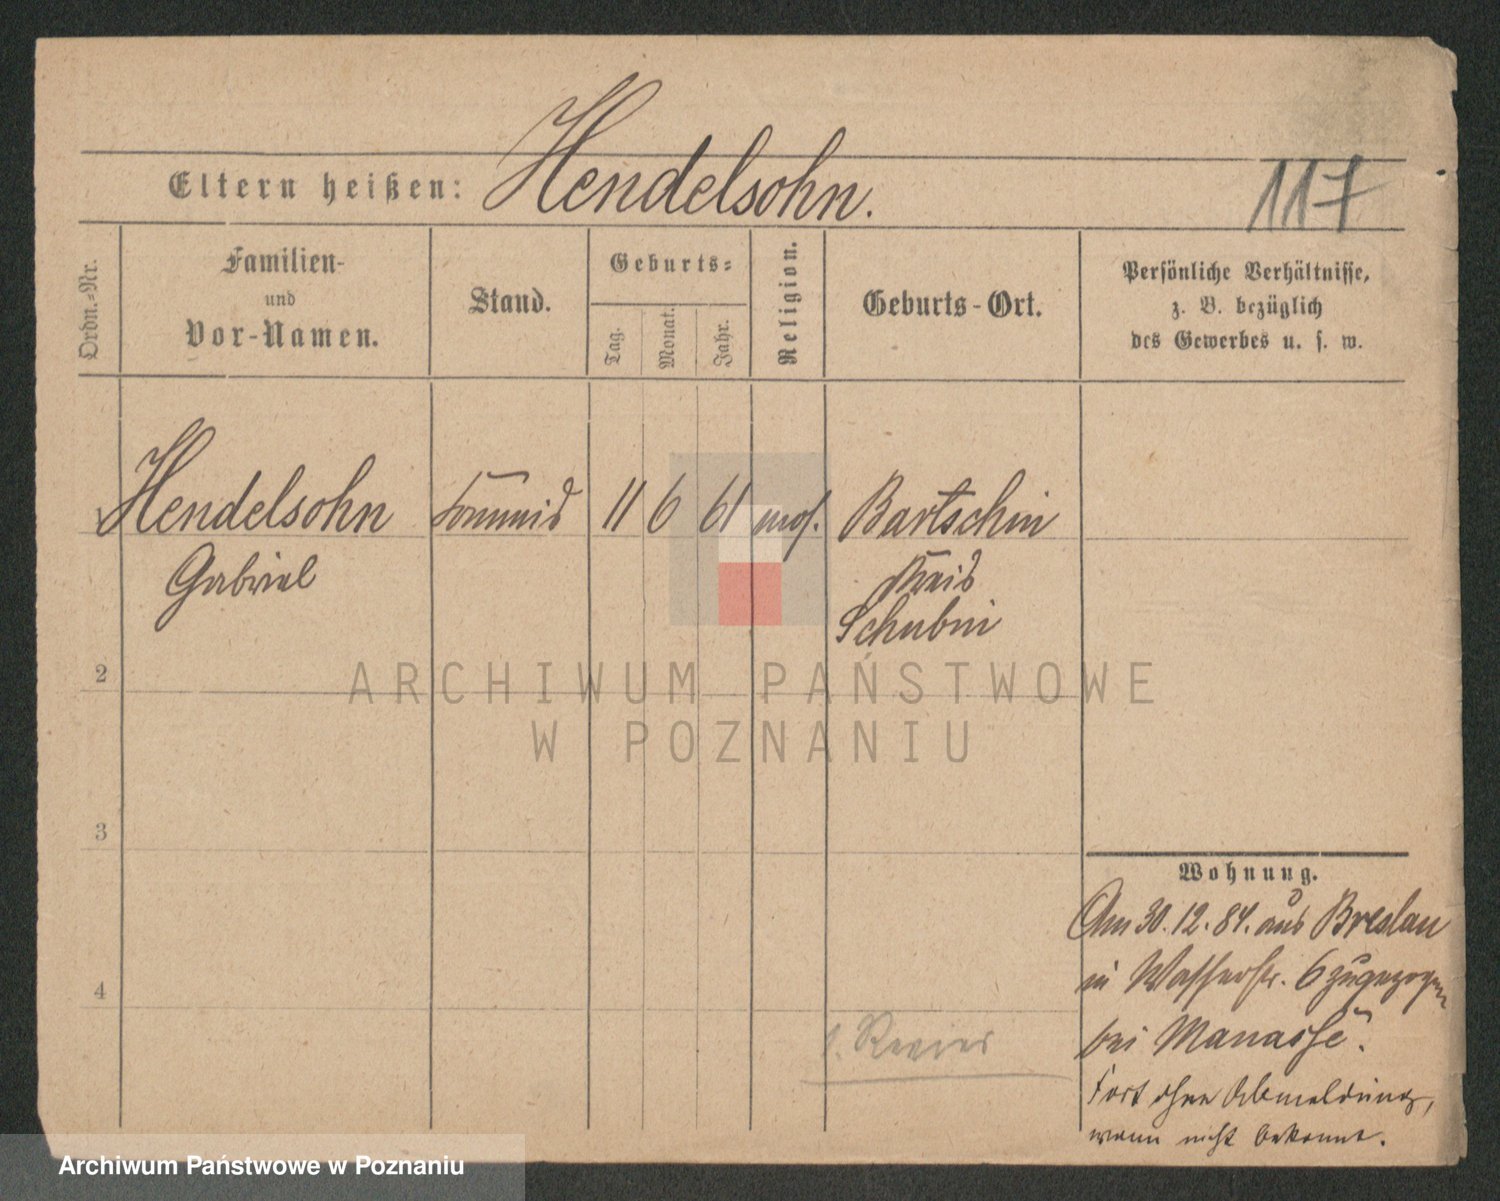 Eltern heißen: Hendelsohn.
117
Ordn.-Nr.
Familien-
und
Vor-Namen.
Stand.
Geburts-
Tag.
Monat.
Jahr.
Religion.
Geburts-Ort.
Persönliche Verhältnisse,
z. B. bezüglich
des Gewerbes u. s. w.
1 Hendelsohn Commis 11 6 61 mos. Bartschin
Gabriel Kreis
Schubin
2
ARCHIWUM PAŃSTWOWE
W POZNANIU
3
4
Wohnung.
Am 30.12.84. aus Breslau
in Wasserstr. 6 zugezogen
bei Manasse.
Fort ohne Abmeldung,
wann nicht bekannt.
1. Revier
Archiwum Państwowe w Poznaniu